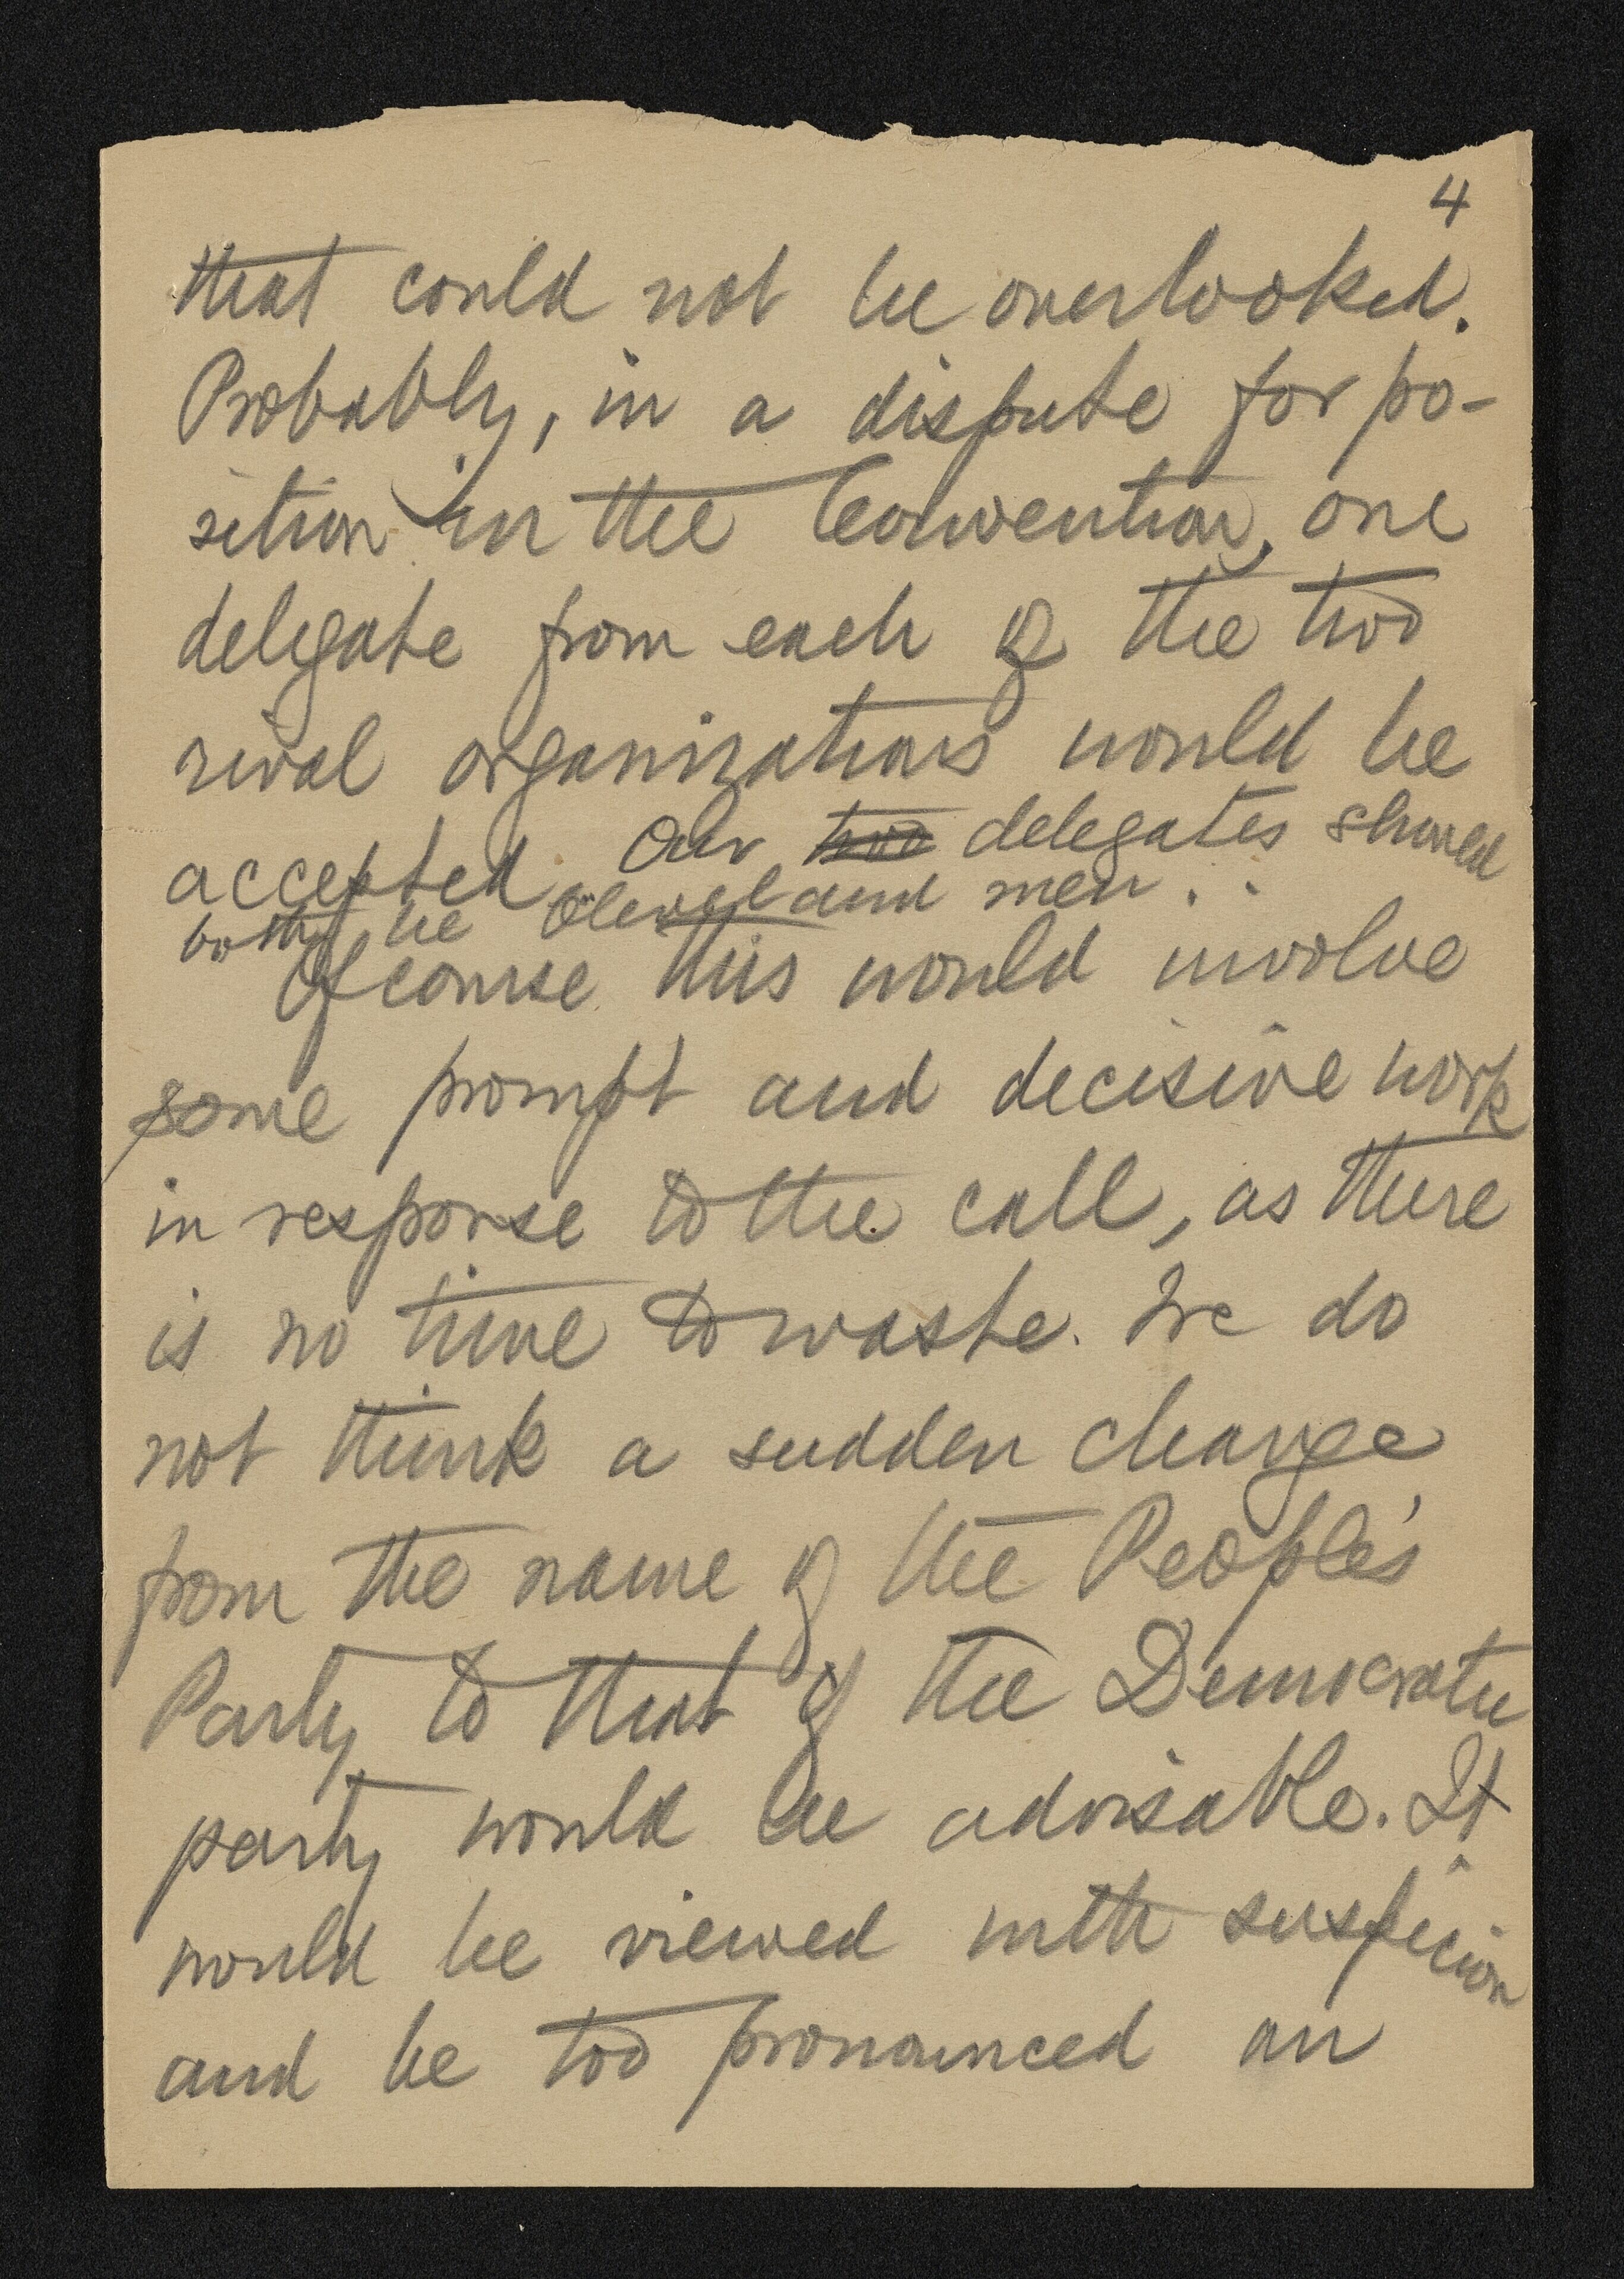 4
that could not be overlooked.
Probably, in a dispute for po-
sition in the Convention, one
delegate from each of the two
rival organizations would be
accepted. Our two delegates should
both be Cleveland men.
Of course this would involve
some prompt and decisive work
in response to the call, as there
is no time to waste. We do
not think a sudden change
from the name of the People's
Party to that of the Democratic
party would be advisable. It
would be viewed with suspicion
and be too pronounced an